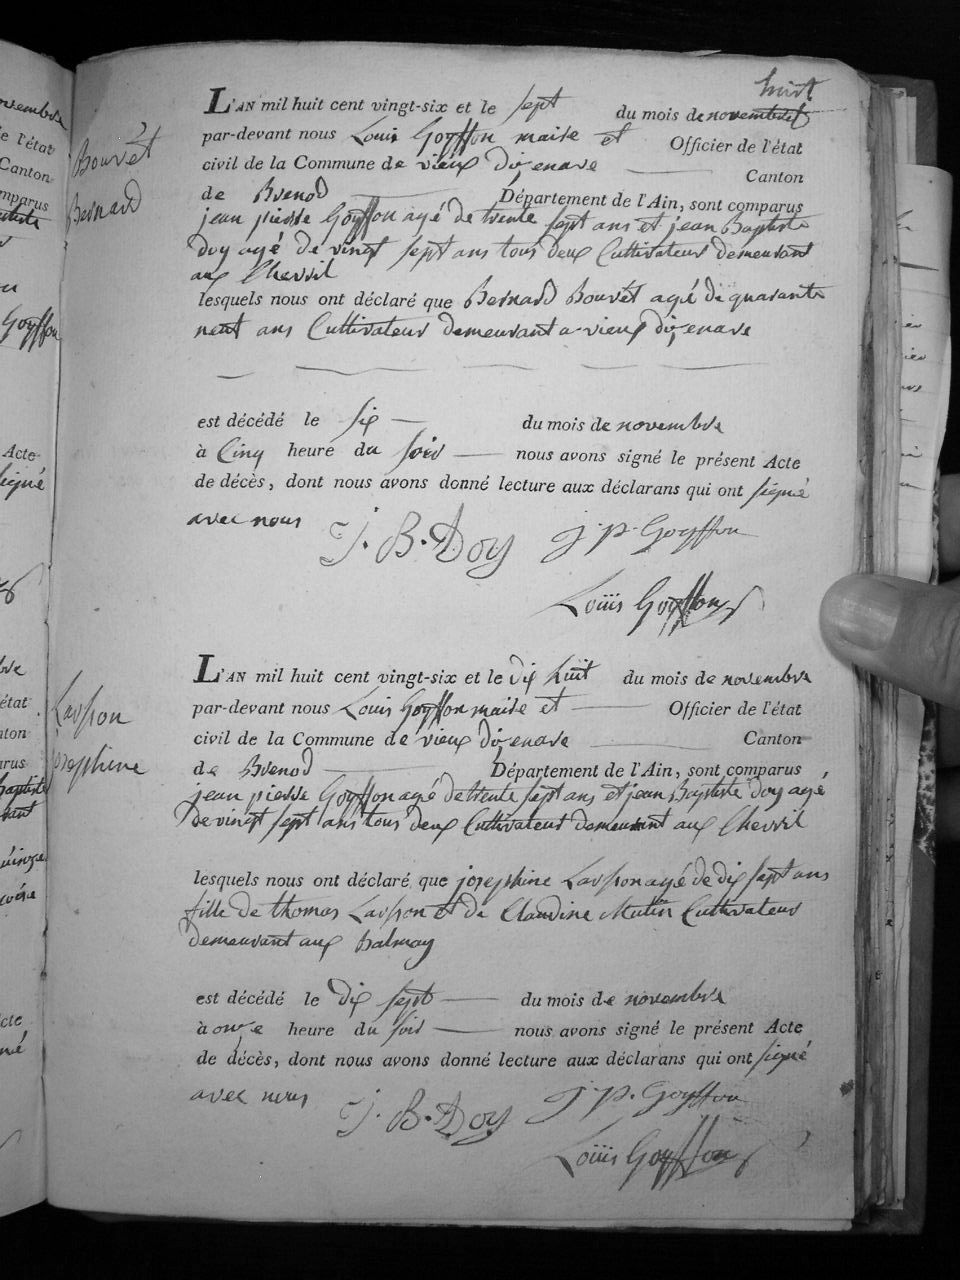 huit
Bouvét
Bernard
L'AN mil huit cent vingt-six et le sept du mois de novembre
par-devant nous Louis Goyffon maire et Officier de l'état
civil de la Commune de vieux d'izenave Canton
de Brenod Département de l'Ain, sont comparus
jean pierre Goyffon agé de trente sept ans et jean Baptiste
Doy agé de vingt sept ans tous deux Cultivateur demeurant
aux Chevril
lesquels nous ont déclaré que Bernard Bouvét agé de quarante
neuf ans Cultivateur demeurant a vieux d'izenave
est décédé le six du mois de novembre
à Cinq heure du soir nous avons signé le présent Acte
de décès, dont nous avons donné lecture aux déclarans qui ont signé
avec nous
J. B. Doy J. P. Goyffon
Louis Goyffon
Lavson
josephine
L'AN mil huit cent vingt-six et le dix huit du mois de novembre
par-devant nous Louis Goyffon maire et Officier de l'état
civil de la Commune de vieux d'izenave Canton
de Brenod Département de l'Ain, sont comparus
jean pierre Goyffon agé de trente sept ans et jean Baptiste Doy agé
de vingt sept ans tous deux Cultivateur demeurant aux Chevril
lesquels nous ont déclaré que josephine agé de dix sept ans
fille de thomas et de Claudine Mutin Cultivateur
demeurant aux Balmay
est décédé le dix sept du mois de novembre
à onze heure du soir nous avons signé le présent Acte
de décès, dont nous avons donné lecture aux déclarans qui ont signé
avec nous
J. B. Doy J. P. Goyffon
Louis Goyffon